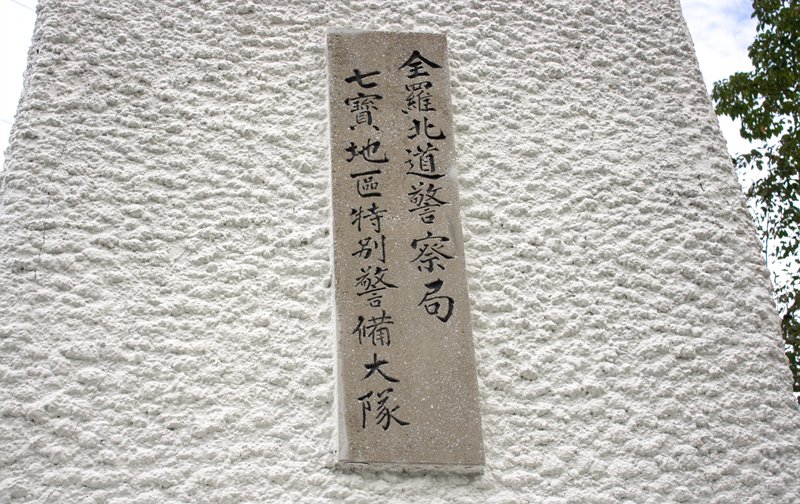 全羅北道警察局
七寶地區特別警備大隊